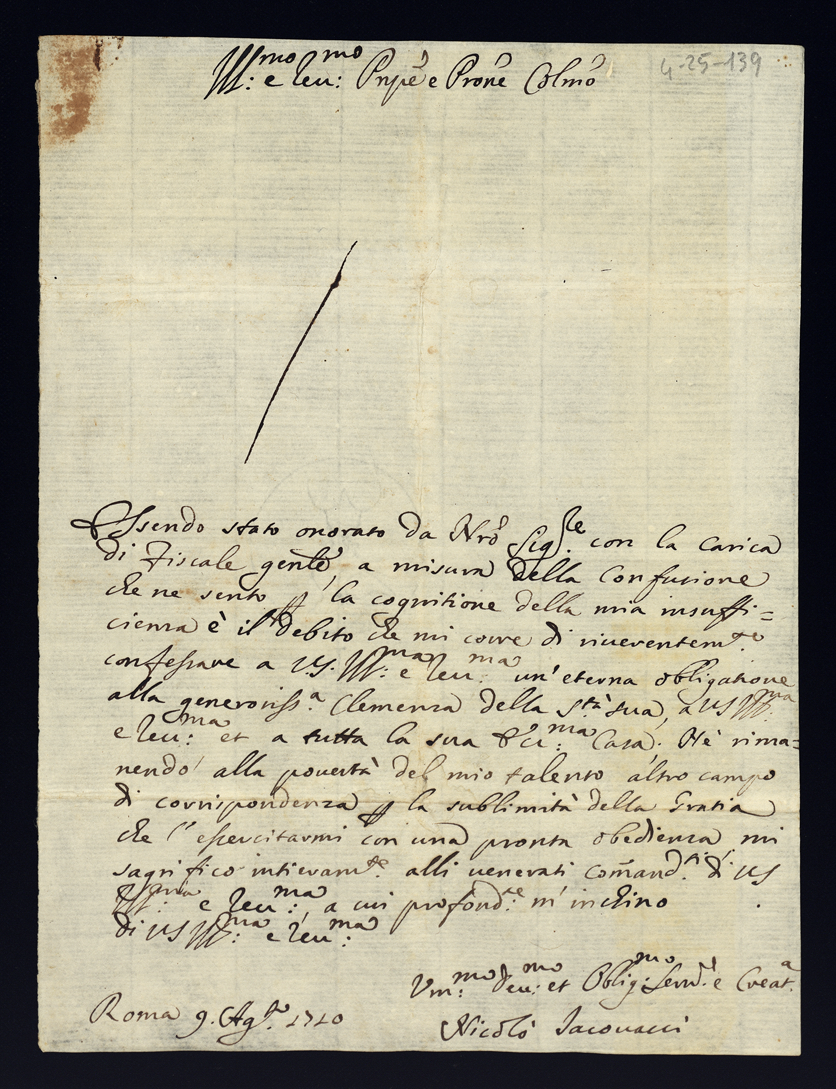 Ill:mo e Reu:mo Pnpe e Prone Colmo
4-25-139
Essendo stato onorato da Nro Sig.re con la carica
di Fiscale genle, a misura della Confusione
che ne sento p la cognitione della mia insuffi=
cienza è il debito che mi corre di riuerentem.te
confessare a V.S. Ill:ma e Reu:ma un' eterna obligatione
alla generosiss.a Clemenza della S.tà sua, a VS Ill:ma
e Reu:ma et a tutta la sua Casa. Nè rima=
nendo alla pouertà del mio talento altro campo
di corrispondenza p la sublimità della Gratia
che l' esercitarmi con una pronta obedienza, mi
sagrifico intieram.te alli uenerati comand.ti di VS
Ill:ma e Reu:ma, a cui profond.te m' inchino
di VS Ill:ma e Reu:ma
Vm:mo Deu:mo et Oblig:mo Seru.e e Creat.a
Roma 9. Ag.to 1710
Nicolò Iacouacci